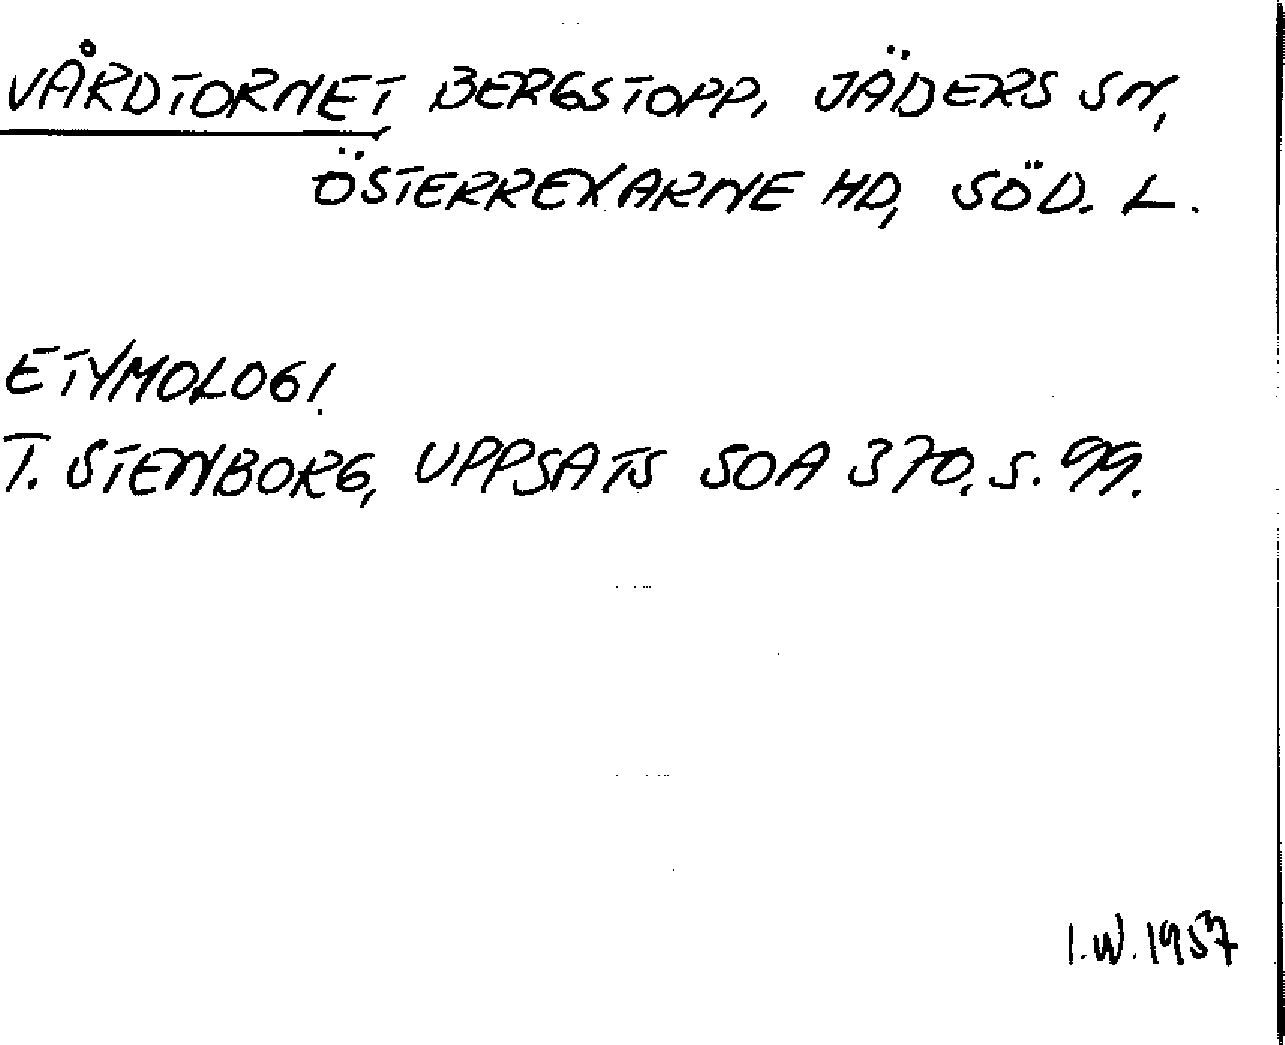 VÅRDTORNET BERGSTOPP, JÄDERS SN,
ÖSTERREKARNE HD, SÖD. L.
ETYMOLOGI.
T. STENBORG, UPPSATS SOA 370, S. 99.
I.W. 1957